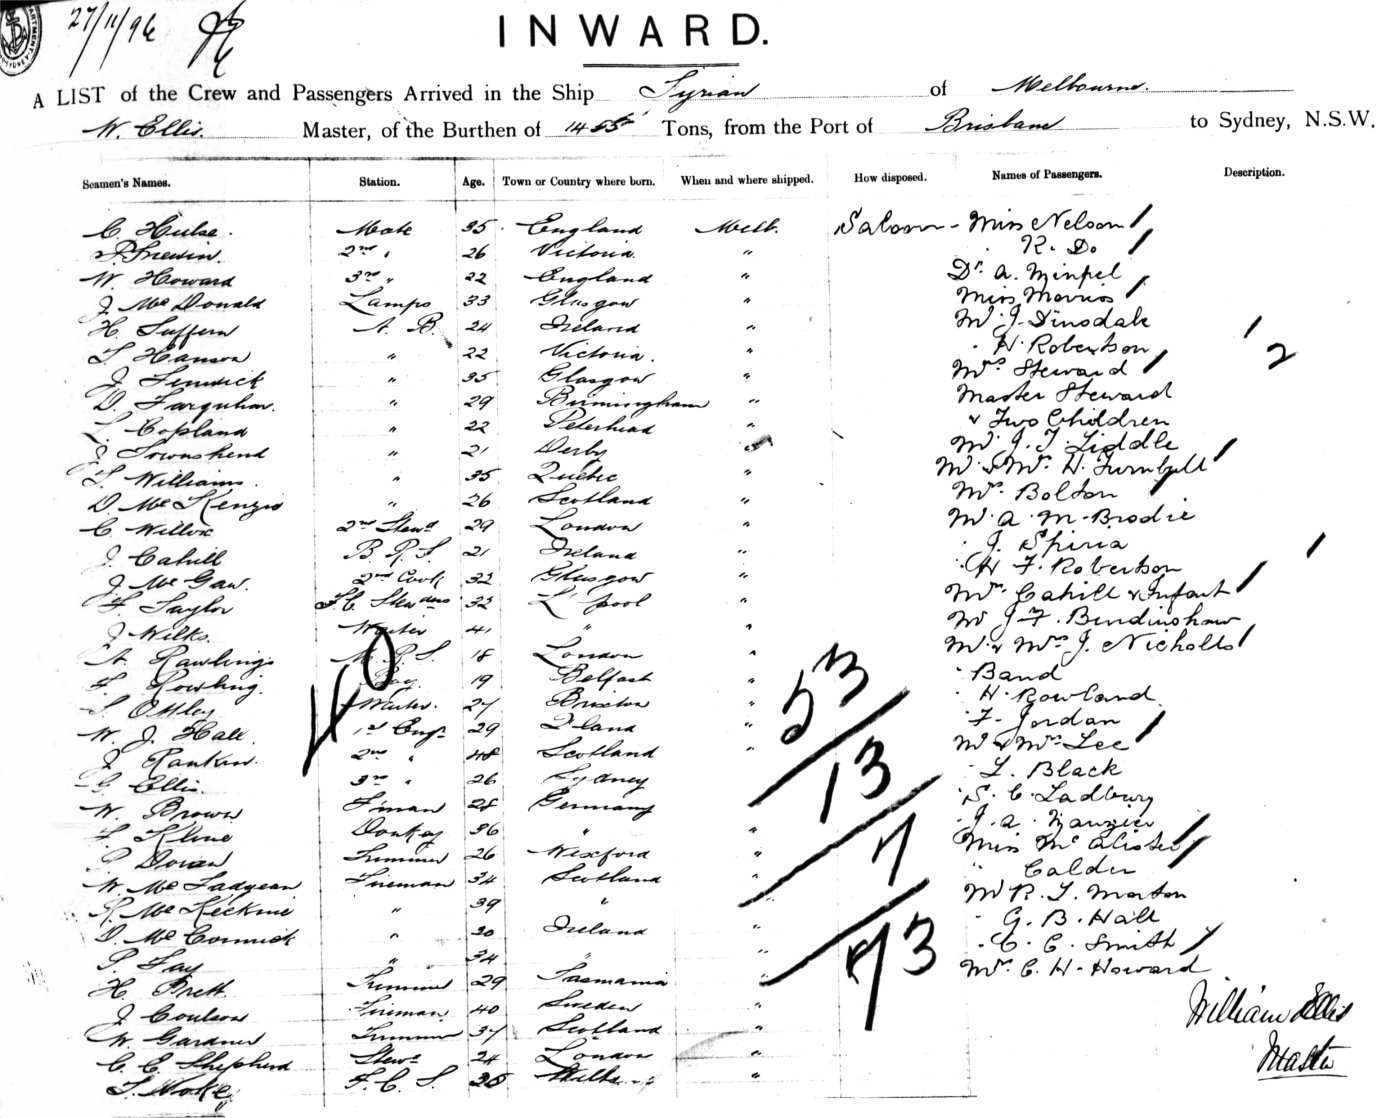 27/11/96
INWARD.
A LIST of the Crew and Passengers Arrived in the Ship Syrian of Melbourne.
W. Ellis. Master, of the Burthen of 1455 Tons, from the Port of Brisbane to Sydney, N.S.W.
Seamen's Names. Station. Age. Town or Country where born. When and where shipped. How disposed. Names of Passengers. Description.
C. Hulse. Mate 35 England Melb. Saloon - Miss Nelson
2nd " 26 Victoria " " K. Do
W. Howard 3rd " 22 England " Dr. A.
J. McDonald Lamps 33 Glasgow " Miss Morris
H. Suffern A. B. 24 Ireland " Mr J. Dinsdale
Hanson " 22 Victoria. " " H. Robertson
J. Fenwick " 35 Glasgow " Mrs Steward 2
D. Farquhar. " 29 Birmingham " Master Steward
L. Copland " 22 Peterhead " & Two Children
J. Townshend " 21 Derby " Mr J. T. Liddle
Williams. " 35 Quebec " Mr & Mrs H. Turnbull
D. McKenzie " 26 Scotland " Mrs Bolton
C. Willox 2nd Stewd 29 London " Mr A. M. Brodie
J. Cahill B. R. S. 21 Ireland " J. Spiria
J. McGaw. 2nd Cook 32 Glasgow " H F. Robertson
F. Taylor F.C. Stewdess 32 L'pool " Mrs Cahill & Infant
J Wilks. Waiter 41 " " Mr J. F.
A. Rawlings M. R. S. 18 London " Mr & Mrs J. Nicholls
F. Rowling. Boy 19 Belfast " Band
Ottley Waiter. 27 Brixton " " H. Rowland
W. J. Hall. 1st Engr 29 " F. Jordan
J Rankin. 2nd " 48 Scotland " Mr & Mrs Lee
G Ellis. 3rd " 26 Sydney " L. Black
W. Brown F'man 28 Germany " S. C. Ladbury
F. Kline Donkey 36 " " J. A.
P. Doran Trimmer 26 Wexford " Miss McAlister
W. McFadyean Fireman 34 Scotland " " Calder
R. McKechnie " 39 " " Mr R. T. Morton
D. McCormick " 30 Ireland " " G. B. Hall
P. Fay " 34 " " " C. C. Smith
H. Brett Trimmer 29 Tasmania " Mrs C. H. Howard
J Coulson Fireman 40 Sweden "
W. Gardner Trimmer 37 Scotland "
C. E. Shepherd Stewd 24 London "
F. C. S. 35 Wilts "
40
53
13
7
73
William Ellis
Master